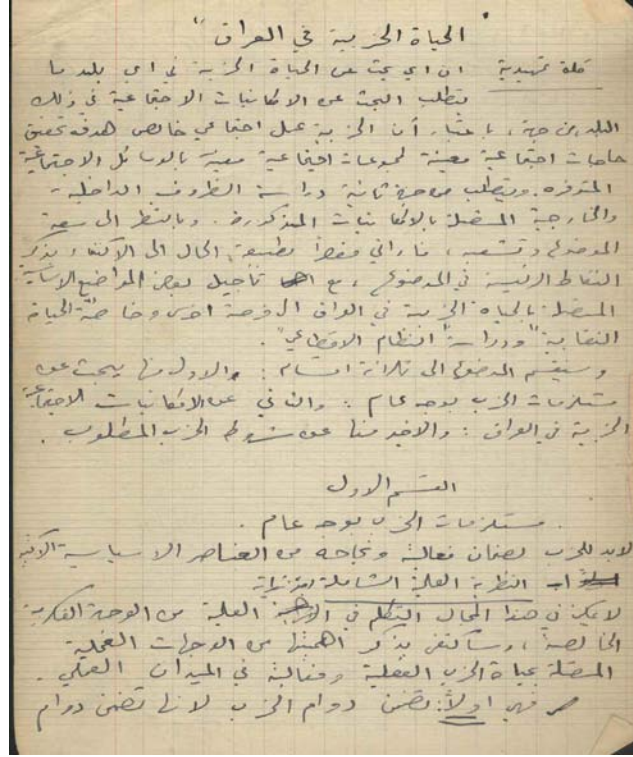 "الحياة الحزبية في العراق"
كلمة تمهيدية ان اي بحث عن الحياة الحزبية في اي بلد ما
يتطلب البحث عن الامكانيات الاجتماعية في ذلك
البلد من جهة، باعتبار أن الحزبية عمل اجتماعي خالص هدفه تحقيق
حاجات اجتماعية معينة لمجموعات اجتماعية معينة بالوسائل الاجتماعية
المتوفره. ويتطلب من جهة ثانية دراسة الظروف الداخلية
والخارجية المتصلة بالامكانيات المذكورة. وبالنظر الى سعة
الموضوع وتشعبه، فاراني مضطراً بطبيعة الحال الى الاكتفاء بذكر
النقاط الرئيسة في الموضوع، مع تأجيل بعض المواضيع
المتصلة بالحياة الحزبية في العراق الى فرصة اخرى وخاصة "الحياة
النقابية" ودراسة "النظام الاقطاعي".
وسيقسم الموضوع الى ثلاثة اقسام: والاول منها يبحث عن
مستلزمات الحزب بوجه عام: والثاني عن الامكانيات الاجتماعية
الحزبية في العراق: والاخير منها عن شروط الحزب المطلوب.
القسم الاول
مستلزمات الحزب بوجه عام.
لابد للحزب لضمان فعاليته ونجاحه من العناصر الاساسية الآتية
النظرية العلمية الشاملة
لا يمكنني في هذا المجال التكلم في العلمية من الوجهة الفكرية
الخالصة، وسأكتفي بذكر أهميتها من الوجهات العملية
المتصلة بحياة الحزب الفعلية وفعاليته في الميدان العملي.
فهي اولاً: تضمن دوام الحزب لانها تضمن دوام